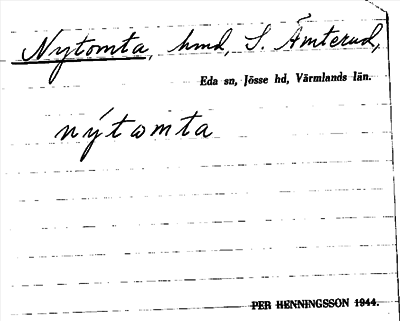 Nytomta, hmd, S. Ämterud,
Eda sn, Jösse hd, Värmlands län.
nýtomta
PER HENNINGSSON 1944.